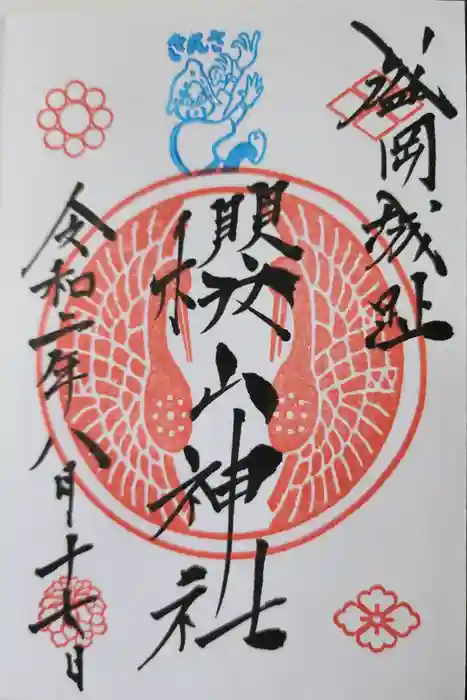 盛岡城址
櫻山神社
令和二年八月十七日
さんさ